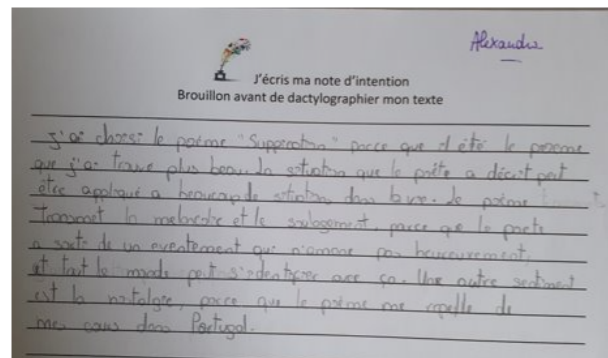 Alexandra
J'écris ma note d'intention
Brouillon avant de dactylographier mon texte
J'ai choisi le poème "Supposition" parce que il été le poème
que j'ai trouvé plus beau. La situation que le poète a décrit peut
être appliqué a beaucoup de situations dans la vie. Le poème
transmet la melancolie et le soulagement, parce que le poete
a sorti de un eventement qui
et tout le monde peut s'identifier avec ça. Une autre sentiment
est la nostalgie, parce que le poème me rapelle de
mes dans Portugal.